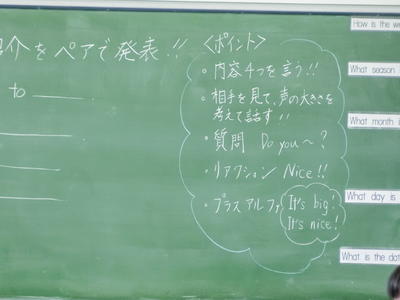 介をペアで発表!!
to
<ポイント>
・内容4つを言う!!
・相手を見て、声の大きさを
考えて話す!!
・質問 Do you〜?
・リアクション Nice!!
・プラスアルファ
It's big!
It's nice!
How is the we
What season i
What month i
What day is
What is the dat